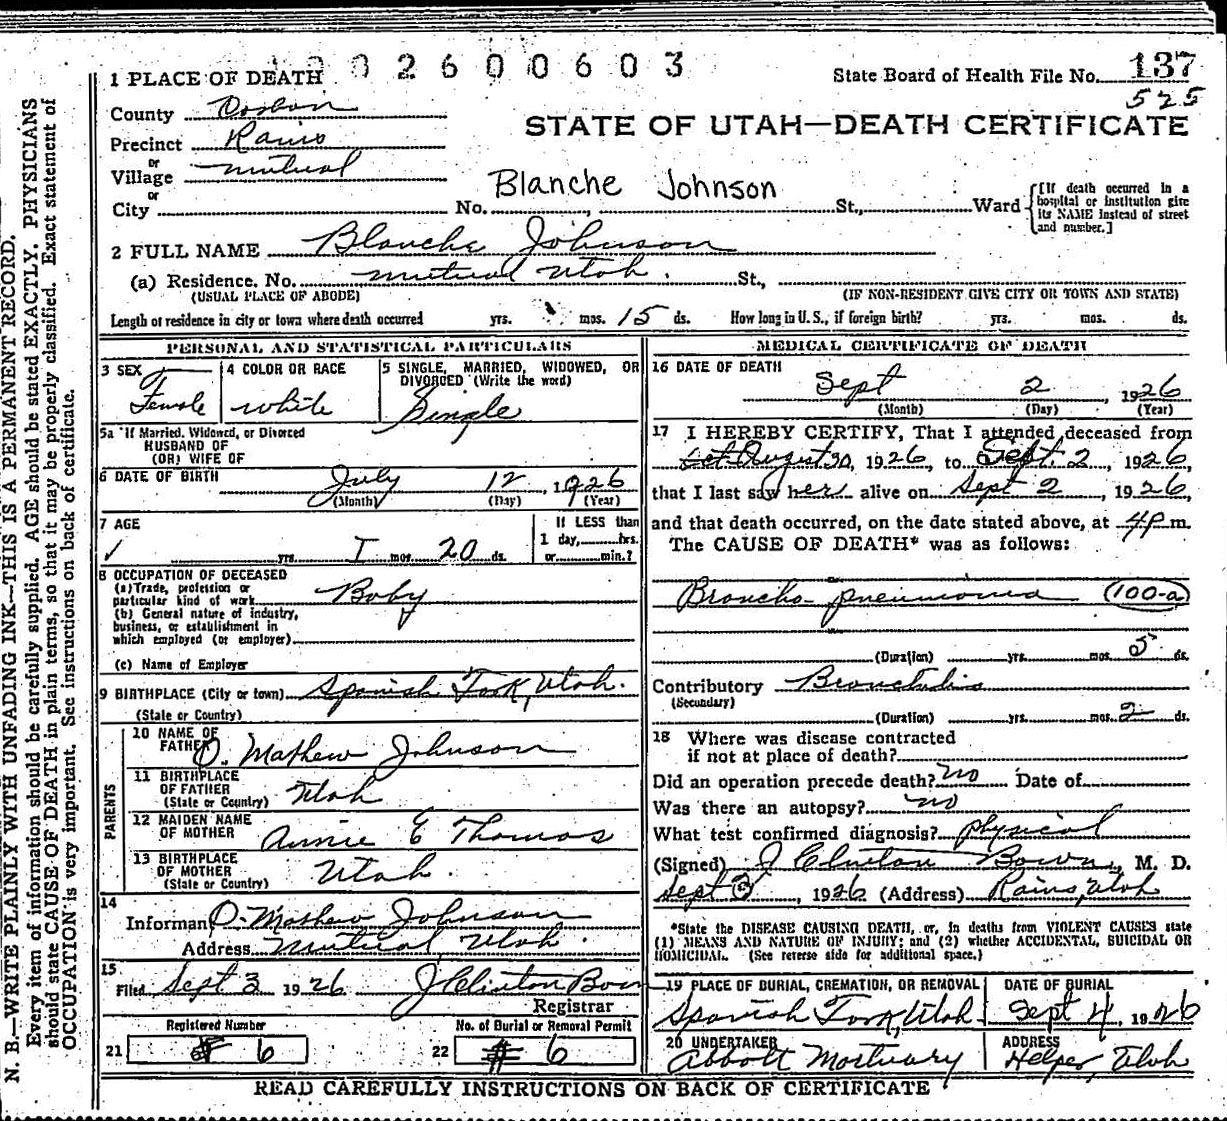 2600603
1 PLACE OF DEATH
State Board of Health File No. 137
525
County Carbon
STATE OF UTAH—DEATH CERTIFICATE
Precinct Rains
or
Village mutual
or
Blanche Johnson
City No. St., Ward
[If death occurred in a hospital or institution give its NAME instead of street and number.]
2 FULL NAME Blanche Johnson
(a) Residence. No. mutual Utah. St.,
(USUAL PLACE OF ABODE) (IF NON-RESIDENT GIVE CITY OR TOWN AND STATE)
Length of residence in city or town where death occurred yrs. mos. 15 ds. How long in U.S., if foreign birth? yrs. mos. ds.
PERSONAL AND STATISTICAL PARTICULARS
3 SEX Female
4 COLOR OR RACE white
5 SINGLE, MARRIED, WIDOWED, OR DIVORCED (Write the word) Single
5a If Married, Widowed, or Divorced
HUSBAND OF
(OR) WIFE OF
6 DATE OF BIRTH July 12, 1926
(Month) (Day) (Year)
7 AGE
yrs. 1 mos. 20 ds.
If LESS than
1 day, hrs.
or min.?
8 OCCUPATION OF DECEASED
(a) Trade, profession or
particular kind of work Baby
(b) General nature of industry,
business, or establishment in
which employed (or employer)
(c) Name of Employer
9 BIRTHPLACE (City or town) Spanish Fork, Utah.
(State or Country)
PARENTS
10 NAME OF
FATHER O. Mathew Johnson
11 BIRTHPLACE
OF FATHER
(State or Country) Utah
12 MAIDEN NAME
OF MOTHER Annie E Thomas
13 BIRTHPLACE
OF MOTHER
(State or Country) Utah.
14
Informant O. Mathew Johnson
Address mutual Utah.
15
Filed Sept 3 1926 J Clinton Bow
Registrar
Registered Number No. of Burial or Removal Permit
21 # 6 22 # 6
MEDICAL CERTIFICATE OF DEATH
16 DATE OF DEATH
Sept 2, 1926
(Month) (Day) (Year)
17 I HEREBY CERTIFY, That I attended deceased from
August 30, 1926, to Sept. 2, 1926,
that I last saw her alive on Sept 2, 1926,
and that death occurred, on the date stated above, at 4 P m.
The CAUSE OF DEATH* was as follows:
Broncho pneumonia (100-a)
(Duration) yrs. mos. 5 ds.
Contributory
(Secondary)
(Duration) yrs. mos. 2 ds.
18 Where was disease contracted
if not at place of death?
Did an operation precede death? no Date of
Was there an autopsy? no
What test confirmed diagnosis? physical
(Signed) J Clinton Bown, M. D.
Sept 3, 1926 (Address) Rains, Utah
*State the DISEASE CAUSING DEATH, or, in deaths from VIOLENT CAUSES state
(1) MEANS AND NATURE OF INJURY; and (2) whether ACCIDENTAL, SUICIDAL OR
HOMICIDAL. (See reverse side for additional space.)
19 PLACE OF BURIAL, CREMATION, OR REMOVAL DATE OF BURIAL
Spanish Fork, Utah Sept 4, 1926
20 UNDERTAKER ADDRESS
Abbott Mortuary Helper, Utah
READ CAREFULLY INSTRUCTIONS ON BACK OF CERTIFICATE
N. B.—WRITE PLAINLY WITH UNFADING INK—THIS IS A PERMANENT RECORD.
Every item of information should be carefully supplied. AGE should be stated EXACTLY. PHYSICIANS
should state CAUSE OF DEATH in plain terms, so that it may be properly classified. Exact statement of
OCCUPATION is very important. See instructions on back of certificate.